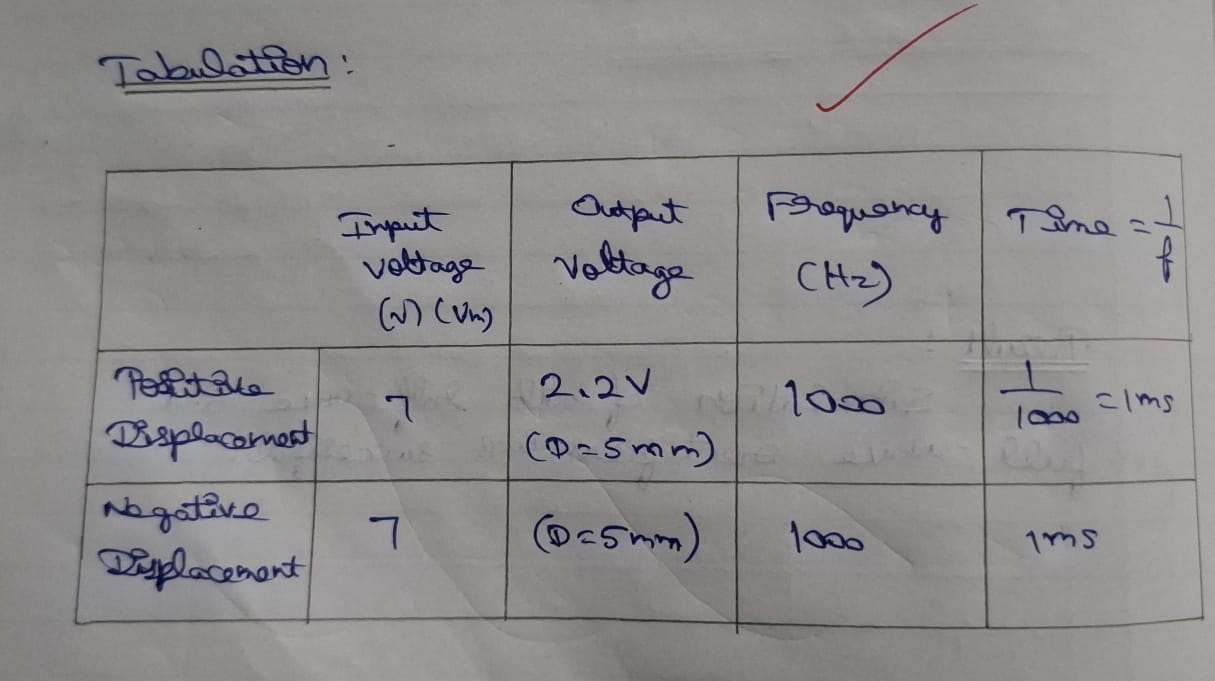 Tabulation :
Input voltage (V) (Vm)
Output Voltage
Frequency (Hz)
Time = 1/f
Positive Displacement
7
2.2V (D=5mm)
1000
1/1000 = 1ms
Negative Displacement
7
(D=5mm)
1000
1ms